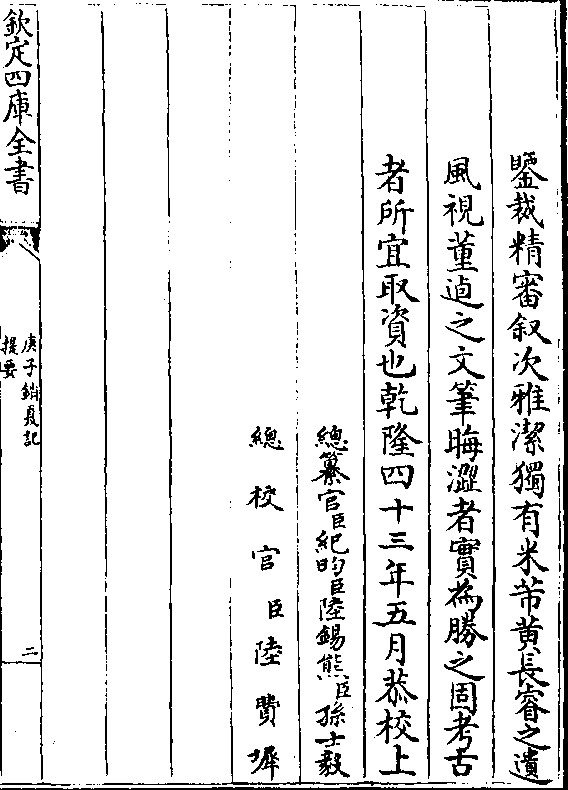 鑒裁精審叙次雅潔獨有米芾黄長睿之遺
風視董逌之文筆晦澀者實為勝之固考古
者所宜取資也乾隆四十三年五月恭校上
總纂官臣紀昀臣陸錫熊臣孫士毅
總校官臣陸費墀
欽定四庫全書
庚子銷夏記
提要
二